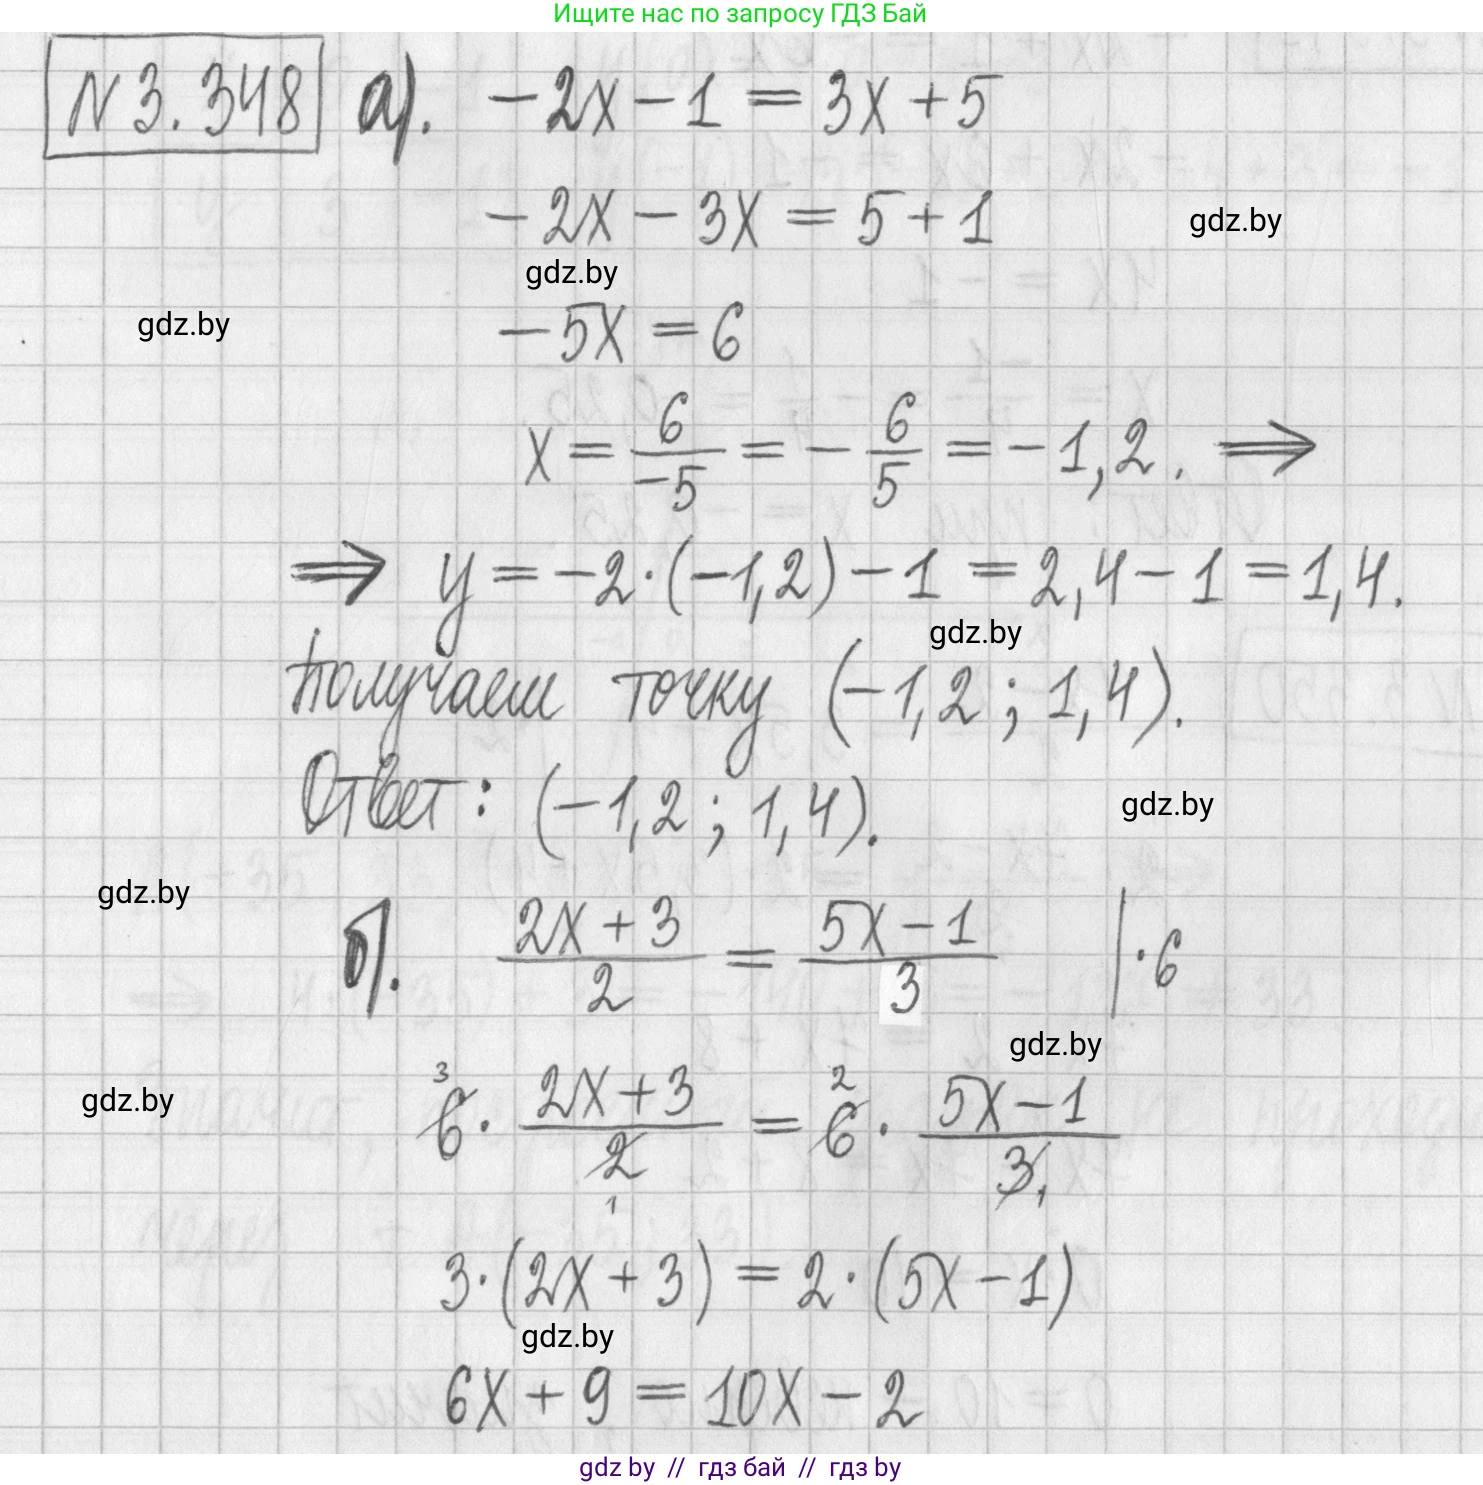 Ищите нас по запросу ГДЗ Бай
N3.348 а). -2x-1=3x+5
-2x-3x=5+1
gdz.by
gdz.by
gdz.by
-5x=6
x=6/-5=-6/5=-1,2. ⇒
⇒ y=-2·(-1,2)-1=2,4-1=1,4.
gdz.by
Получаем точку (-1,2; 1,4).
Ответ: (-1,2; 1,4).
gdz.by
gdz.by
б). 2x+3/2=5x-1/3 |·6
gdz.by
gdz.by
3 2
6·2x+3/2=6·5x-1/3
1 1
3·(2x+3)=2·(5x-1)
gdz.by
6x+9=10x-2
gdz by // гдз бай // гдз by